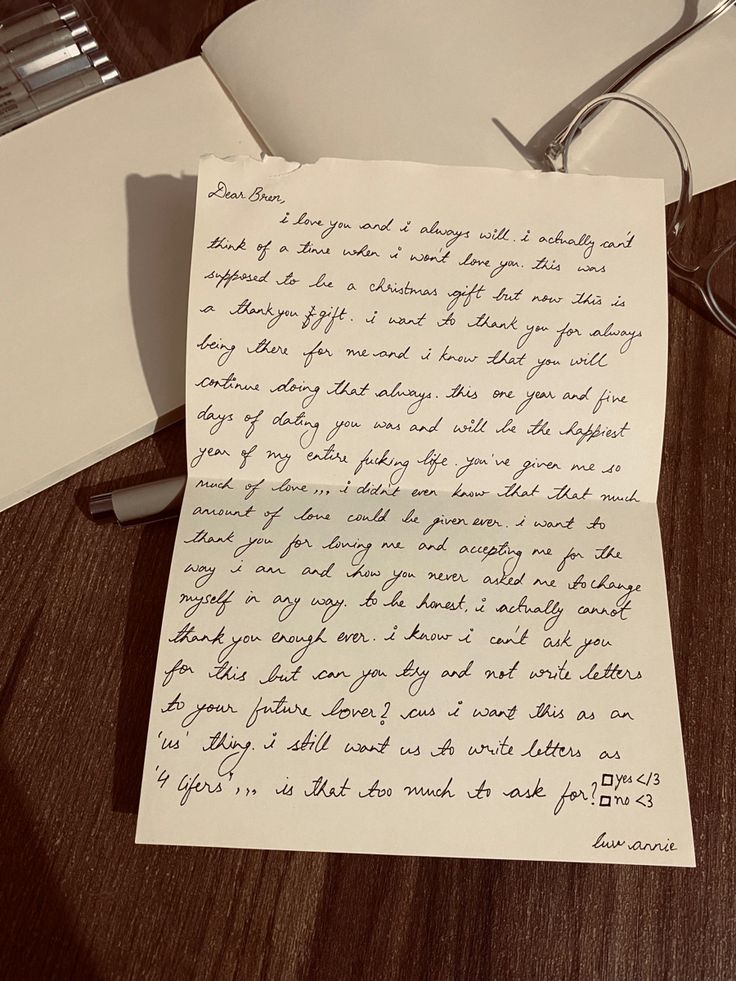 Dear Bren,
i love you and i always will. i actually can't
think of a time when i won't love you. this was
supposed to be a christmas gift but now this is
a thank you gift. i want to thank you for always
being there for me and i know that you will
continue doing that always. this one year and five
days of dating you was and will be the happiest
year of my entire fucking life. you've given me so
much of love,,, i didn't even know that that much
amount of love could be given ever. i want to
thank you for loving me and accepting me for the
way i am and how you never asked me to change
myself in any way. to be honest, i actually cannot
thank you enough ever. i know i can't ask you
for this but can you try and not write letters
to your future lover? cus i want this as an
'us' thing. i still want us to write letters as
'4 lifers',,, is that too much to ask for? □ yes </3
□ no <3
luv annie